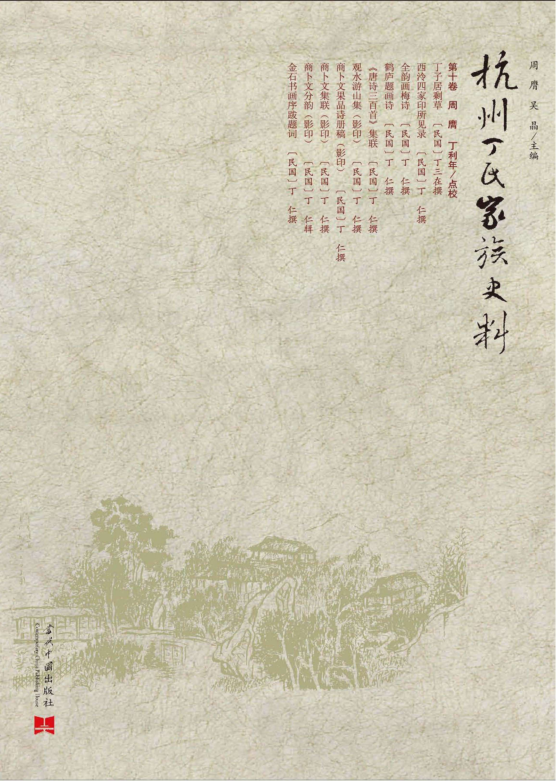 周 膺 吴 晶/主编
杭州丁氏家族史料
第十卷 周 膺 丁利年/点校
丁子居剩草 〔民国〕丁三在撰
西泠四家印所见录 〔民国〕丁 仁撰
全韵画梅诗 〔民国〕丁 仁撰
鹤庐题画诗 〔民国〕丁 仁撰
《唐诗三百首》集联 〔民国〕丁 仁撰
观水游山集（影印） 〔民国〕丁 仁撰
商卜文果品诗册稿（影印） 〔民国〕丁 仁撰
商卜文集联（影印） 〔民国〕丁 仁撰
商卜文分韵（影印） 〔民国〕丁 仁辑
金石书画序跋题词 〔民国〕丁 仁撰
当代中国出版社
Contemporary China Publishing House